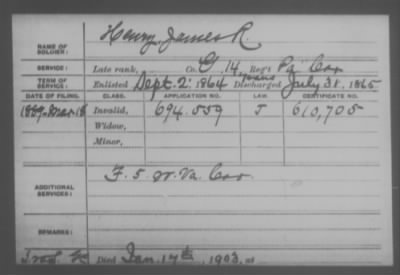 Henry James R.
NAME OF SOLDIER:
SERVICE: Late rank, Co. G, 14 Reg't Pa Cav
TERM OF SERVICE: Enlisted Sept. 2, 1864 Discharged July 31, 1865
DATE OF FILING. CLASS. APPLICATION NO. LAW. CERTIFICATE NO.
1889 Mar 18 Invalid, 694.559 J 610,705
Widow,
Minor,
ADDITIONAL SERVICES: F. 5 W. Va. Cav.
REMARKS:
Died Jan. 17th, 1903, at